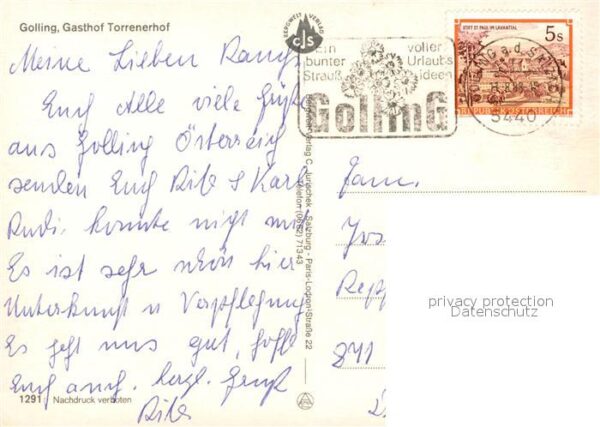 Golling, Gasthof Torrenerhof
Meine Lieben
Euch Alle viele Grüße
aus Golling Österreich
senden Euch Rita & Karl
Rudi, konnte nigt mit
Es ist sehr schön hier
Unterkunft u Verpflegung
Es geht uns gut, hoffe
Euch auch. herzl. Grüße
Rita
1291 Nachdruck verboten
BERGWELT VERLAG
cJs
Ein voller
bunter Urlaubs
Strauß ideen
GollinG
STIFT ST. PAUL IM LAVANTTAL
5s
REPUBLIK ÖSTERREICH
5440
Verlag C. Jurischek - Salzburg - Paris-Lodron-Straße 22
Telefon (0662) 71343
Fam.
Jos
Repp
841
privacy protection
Datenschutz